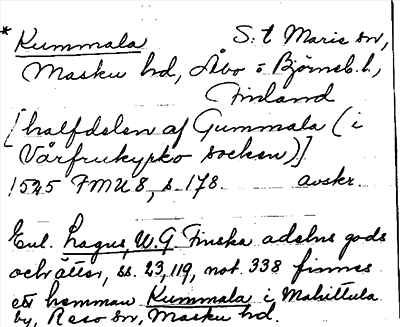 * Kummala S:t Marie sn,
Masku hd, Åbo o Björneb. l.,
Finland
[halfdelen af Gummala (i
Vårfrukyrko socken)]
1525 FMU 8, s. 178. avskr.
Enl. Lagus, W. G. Finska adelns gods
och ätter, ss. 23, 119, not. 338 finnes
ett hemman Kummala i Mahittula
by, Reso sn, Masku hd.